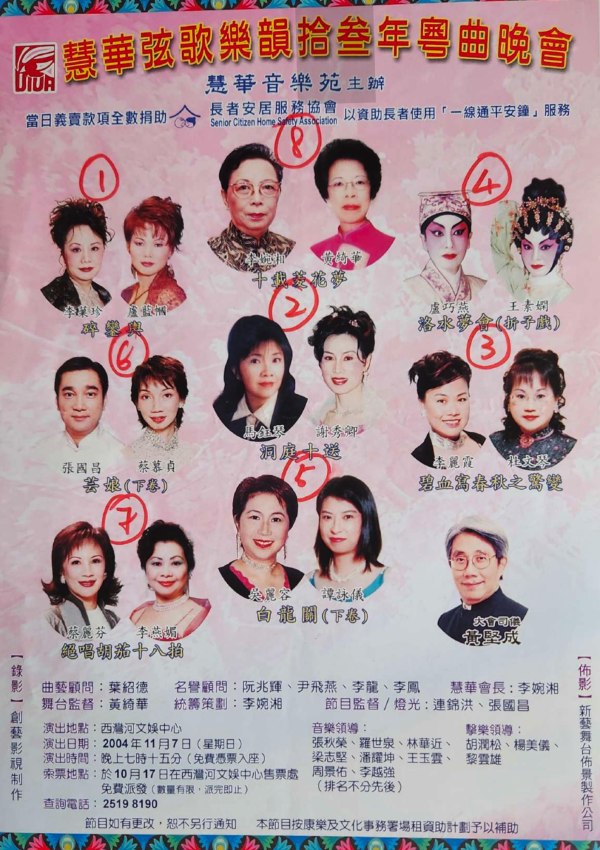 VIUA
慧華弦歌樂韻拾叁年粵曲晚會
慧華音樂苑主辦
當日義賣款項全數捐助 長者安居服務協會 以資助長者使用「一線通平安鐘」服務
Senior Citizen Home Safety Association
①
⑧
④
李葉珍 盧藍嫺
碎鑾輿
李婉湘 黃綺華
十載菱花夢
盧巧燕 王素嫻
洛水夢會(折子戲)
⑥
②
③
張國昌 蔡慕貞
芸娘(下卷)
馬鈺琴 謝秀卿
洞庭十送
李麗霞 杜文琴
碧血寫春秋之驚變
⑦
⑤
蔡麗芬 李燕媚
絕唱胡茄十八拍
吳麗容 譚詠儀
白龍關(下卷)
大會司儀
黃堅成
【錄影】創藝影視制作
曲藝顧問:葉紹德 名譽顧問:阮兆輝、尹飛燕、李龍、李鳳 慧華會長:李婉湘
舞台監督:黃綺華 統籌策劃:李婉湘 節目監督/燈光:連錦洪、張國昌
演出地點:西灣河文娛中心
演出日期:2004年11月7日(星期日)
演出時間:晚上七時十五分(免費憑票入座)
索票地點:於10月17日在西灣河文娛中心售票處
免費派發(數量有限,派完即止)
查詢電話:2519 8190
音樂領導:
張秋榮、羅世泉、林華近、
梁志堅、潘耀坤、王玉雲、
周景佑、李越強
(排名不分先後)
擊樂領導:
胡潤松、楊美儀、
黎雲雄
【佈影】新藝舞台佈景製作公司
節目如有更改,恕不另行通知 本節目按康樂及文化事務署場租資助計劃予以補助